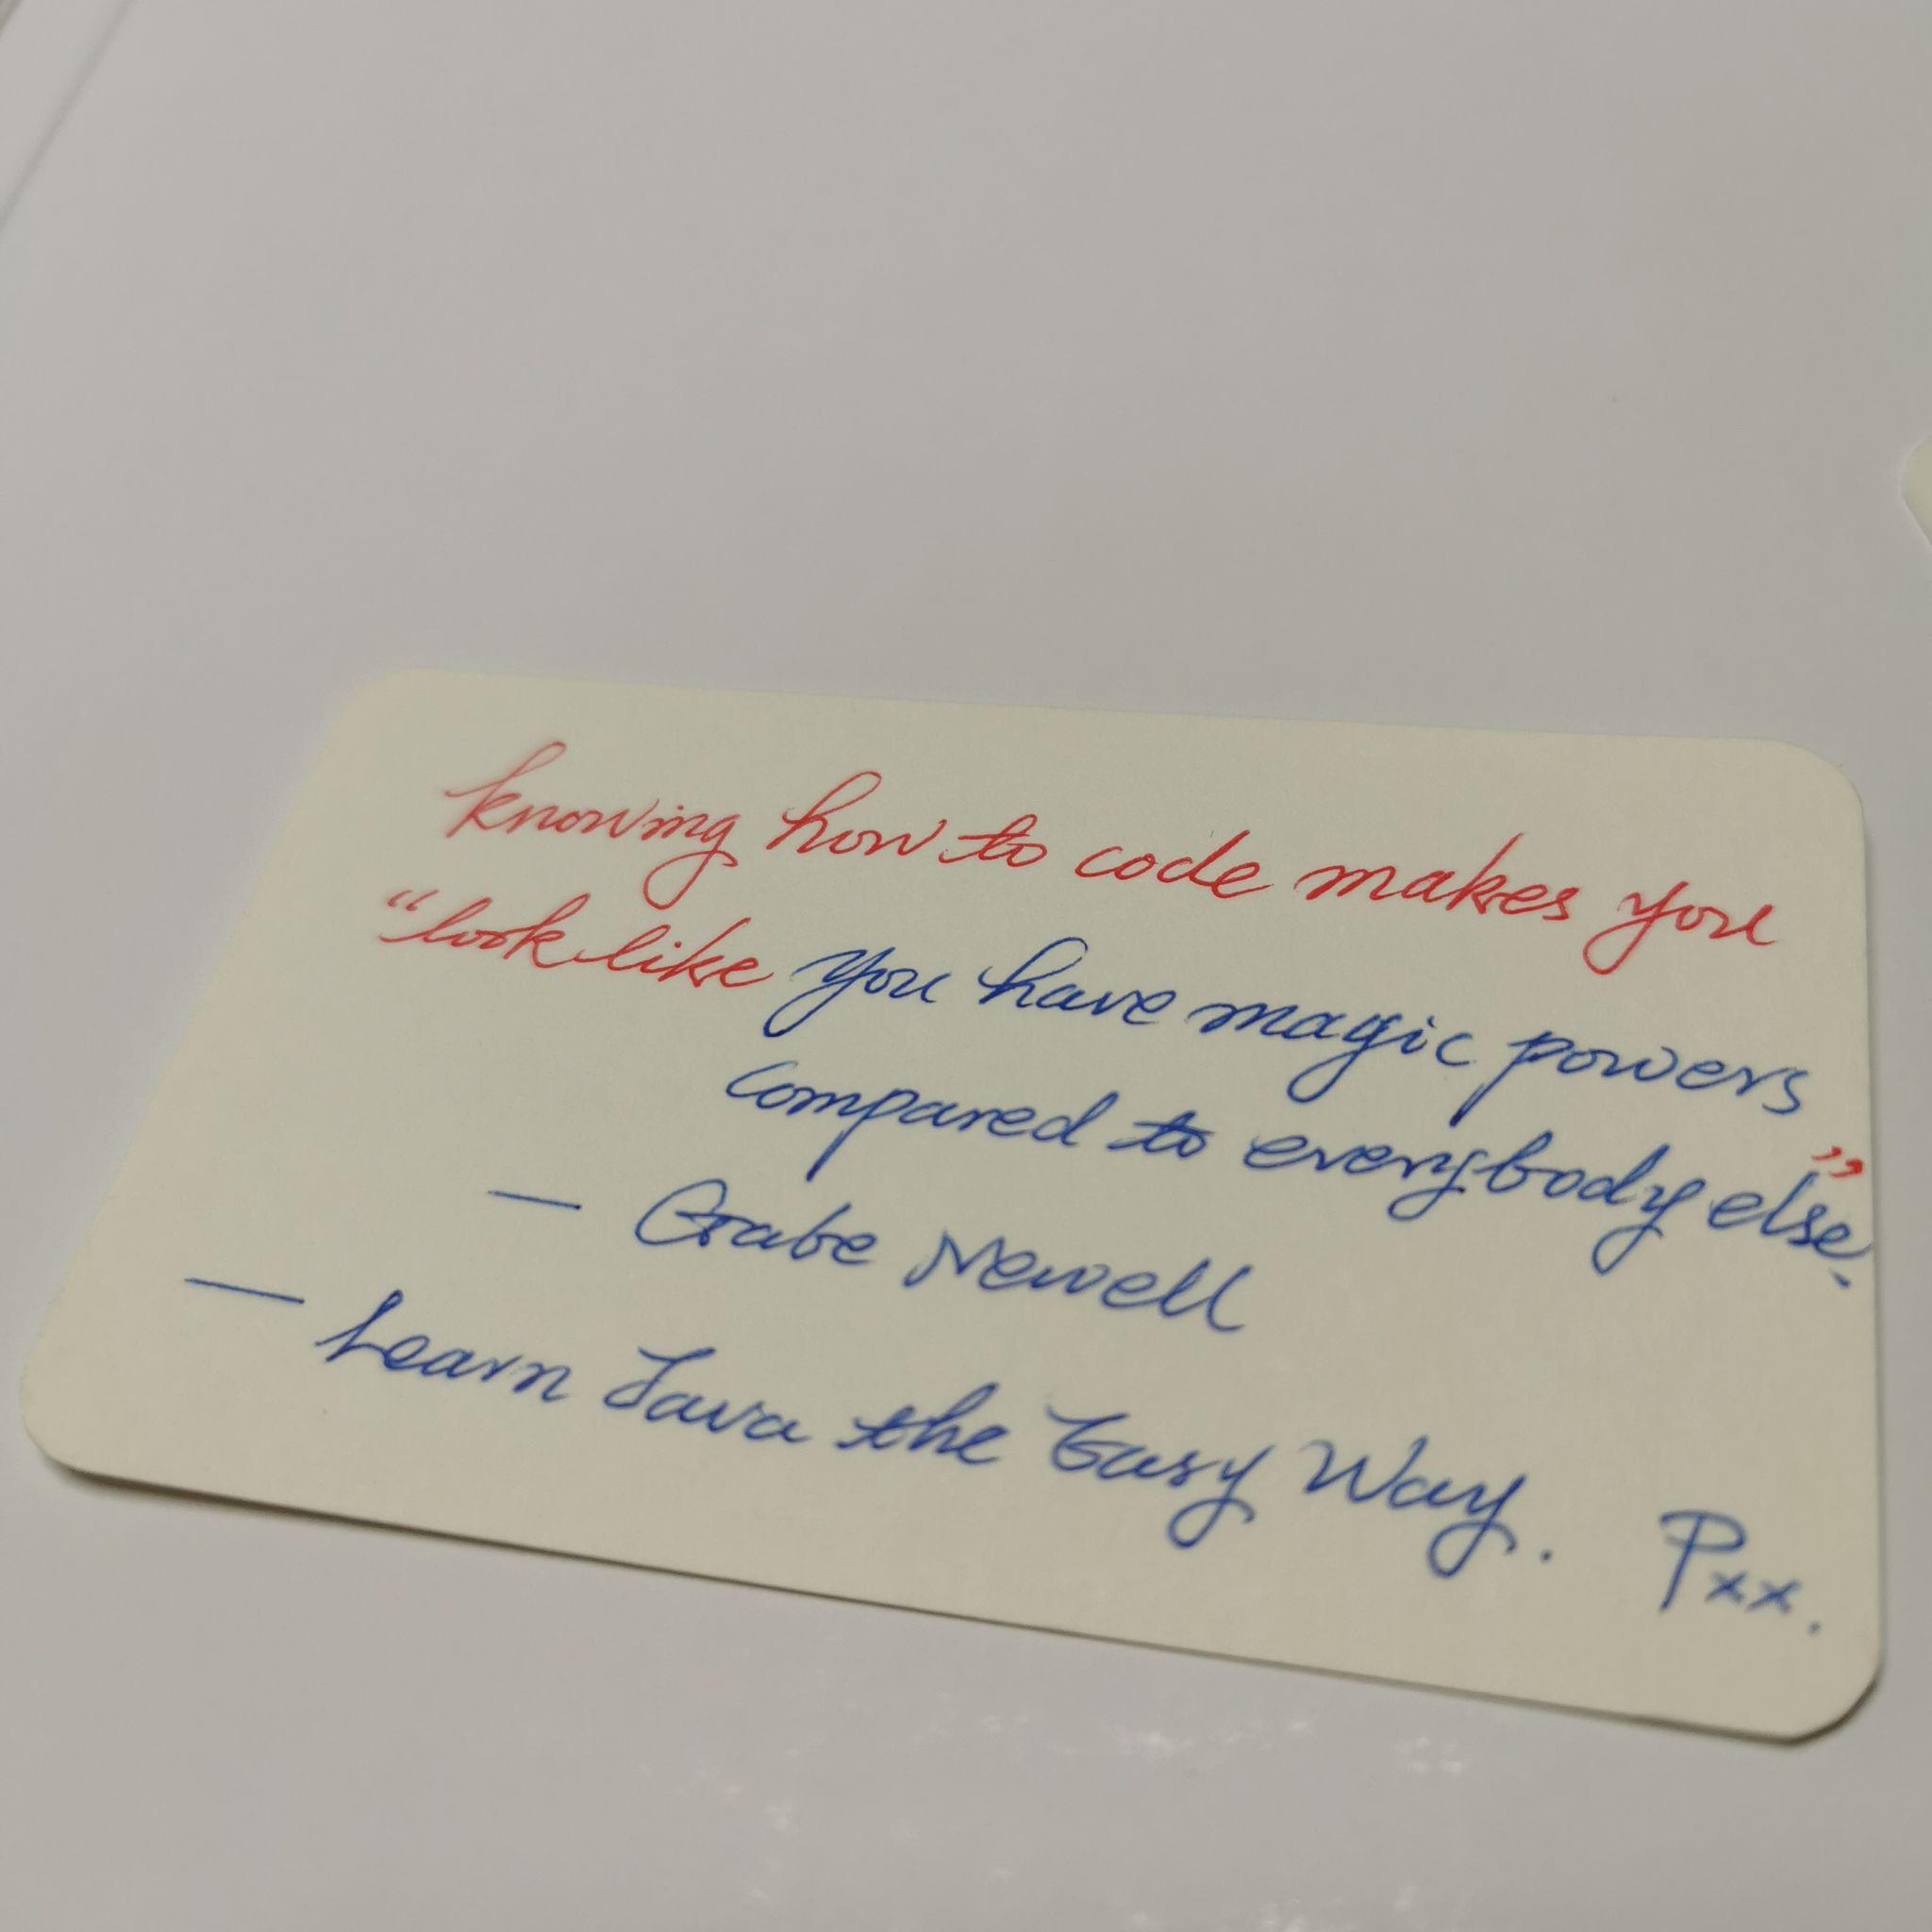 knowing how to code makes you
“look like you have magic powers
compared to everybody else.”
— Gabe Newell
— Learn Java the Easy Way. Pxx.